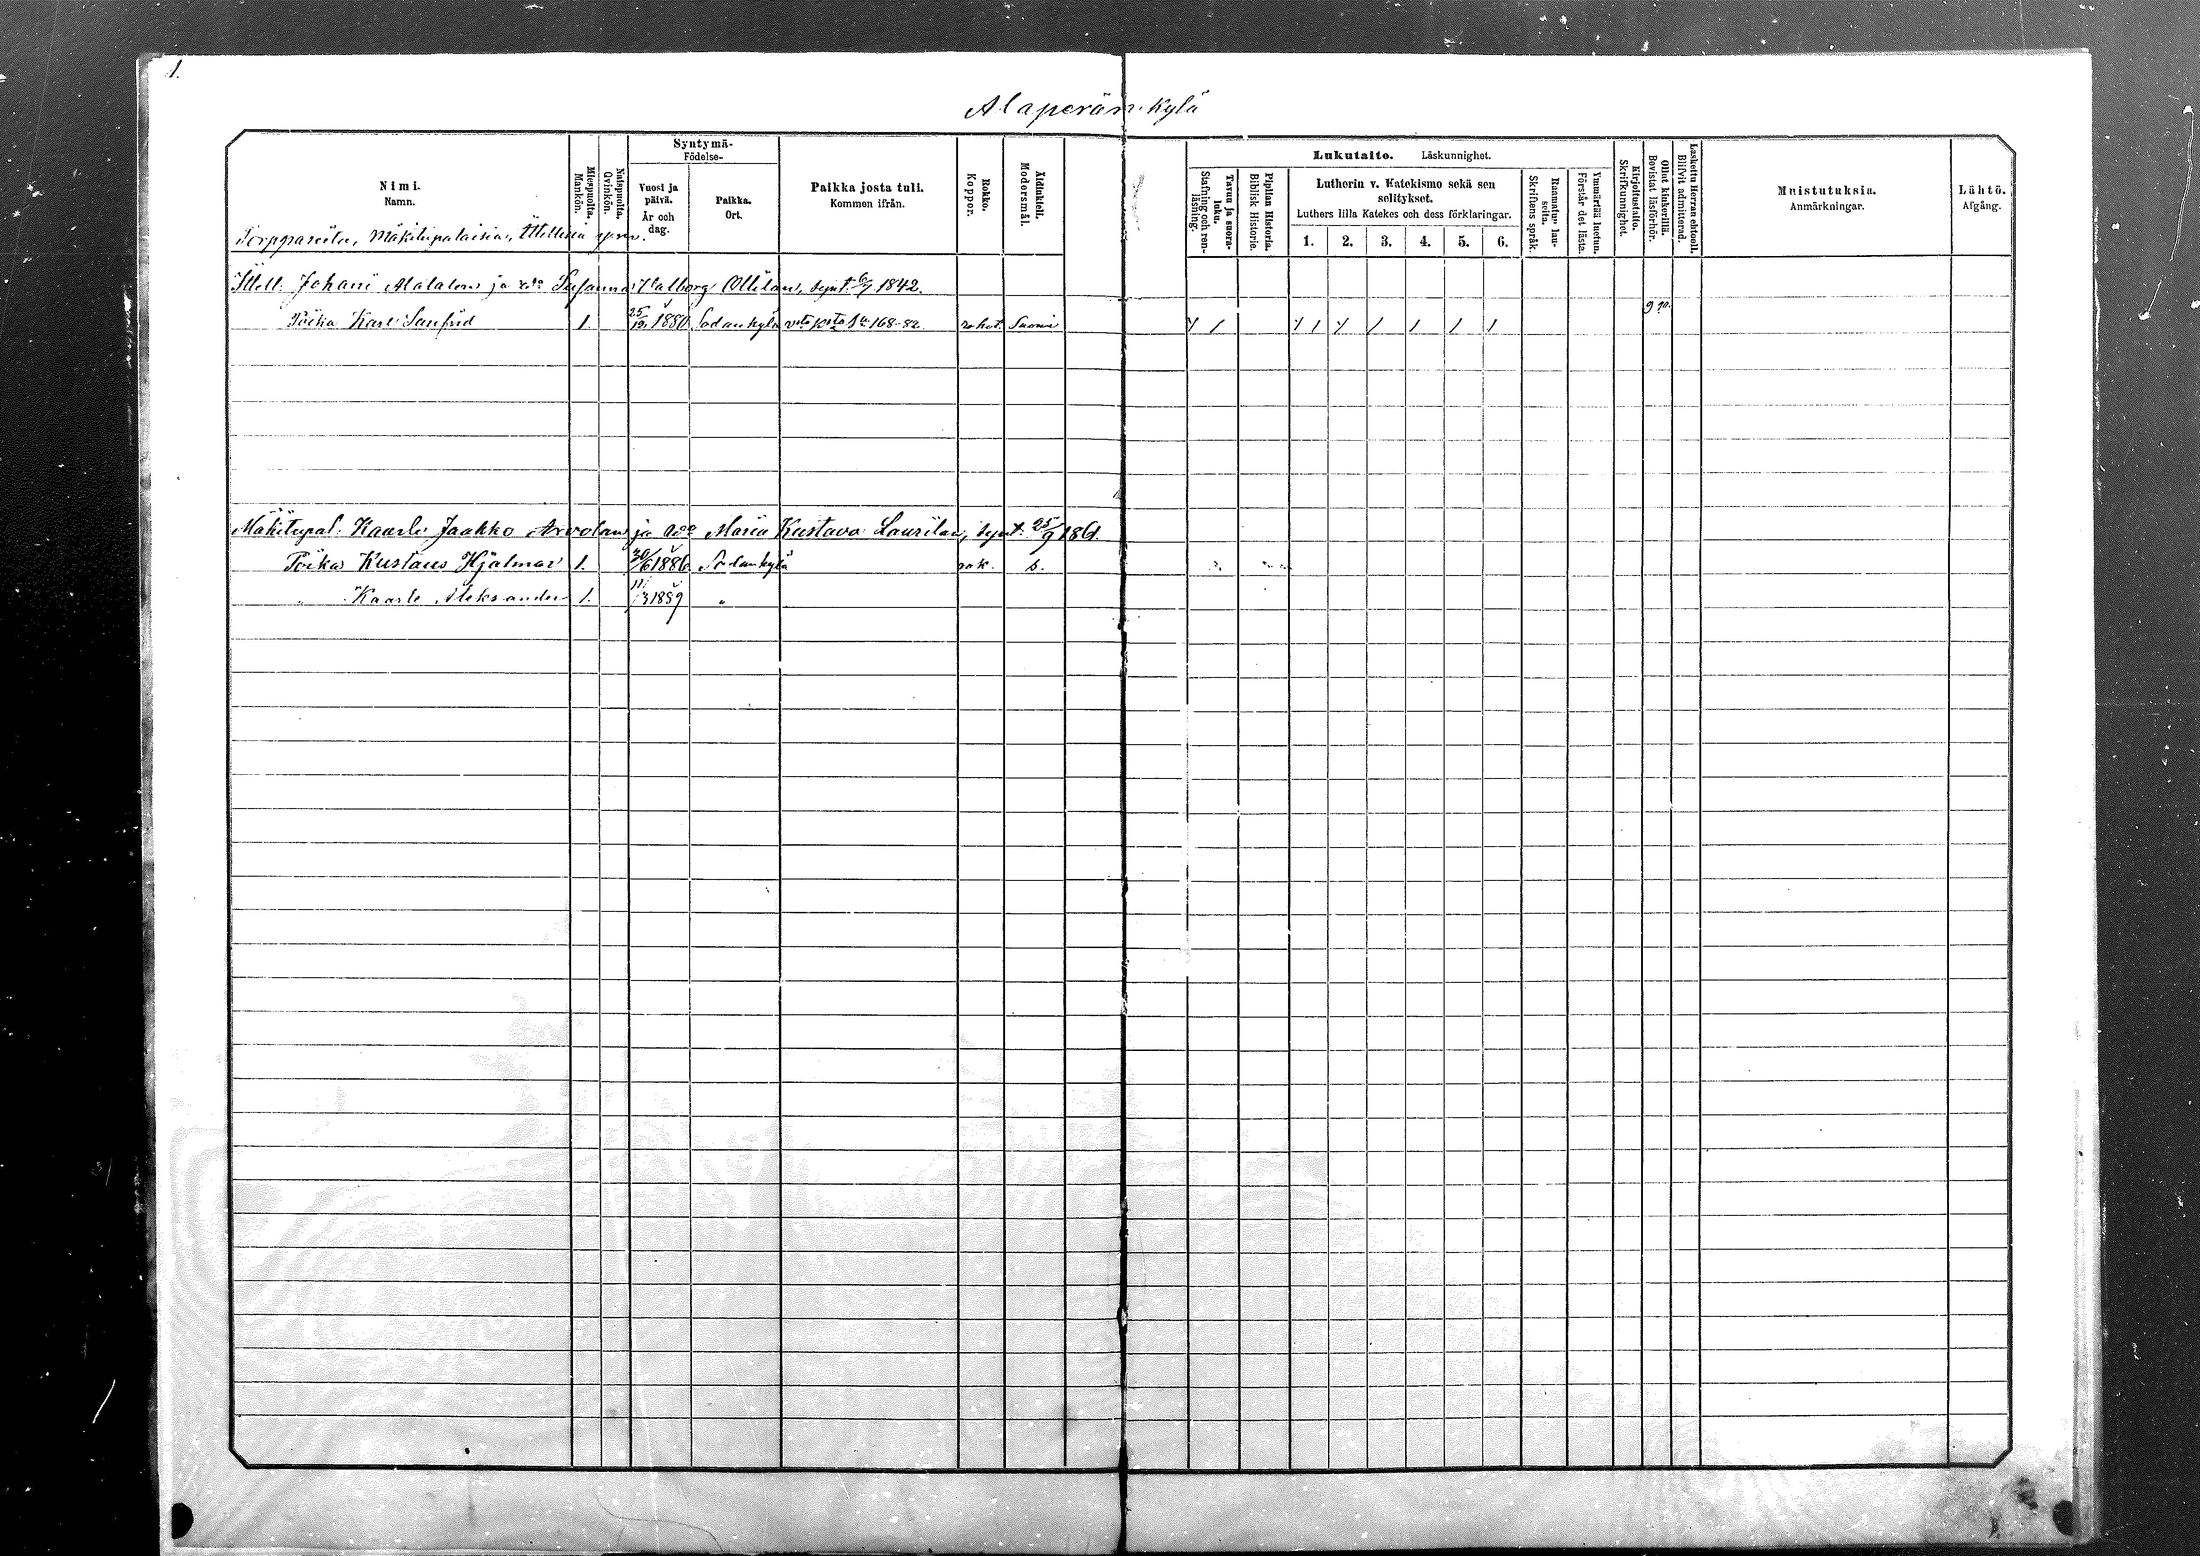 1.
Alaperän kylä
Nimi.
Namn.
Miespuolta.
Mankön.
Naispuolta.
Qvinkön.
Syntymä-
Födelse-
Vuosi ja
päivä.
År och
dag.
Paikka.
Ort.
Paikka josta tuli.
Kommen ifrån.
Rokko.
Koppor.
Äidinkieli.
Modersmål.
Lukutaito. Läskunnighet.
Tavuu ja suora-
luku.
Stafning och ren-
läsning.
Piplian Historia.
Biblisk Historie.
Lutherin v. Katekismo sekä sen
selitykset.
Luthers lilla Katekes och dess förklaringar.
1. 2. 3. 4. 5. 6.
Raamatun lau-
seita.
Skriftens språk.
Ymmärtää luetun.
Förstår det lästa.
Kirjoitustaito.
Skrifkunnighet.
Ollut kinkerillä.
Bevistat läsförhör.
Laskettu Herran ehtooll.
Blifvit admitterad.
Muistutuksia.
Anmärkningar.
Lähtö.
Afgång.
Torppareita, Mäkitupalaisia, Itellisiä
Itell. Johani Alatalon ja Susanna Valborg Ollilan, synt. 6/7 1842.
Poika Karl Sanfrid 1. 25/12 1880 Sodankylä 168-82 rokot. Suomi 9 90.
Mäkitupal. Kaarle Jaakko Arvolan ja Maria Kustava Laurilan, synt. 25/9 1861
Poika Kustaus Hjalmar 1. 30/6 1886 Sodankylä rok. s.
" Kaarle Aleksander 1. 11/3 1889 "